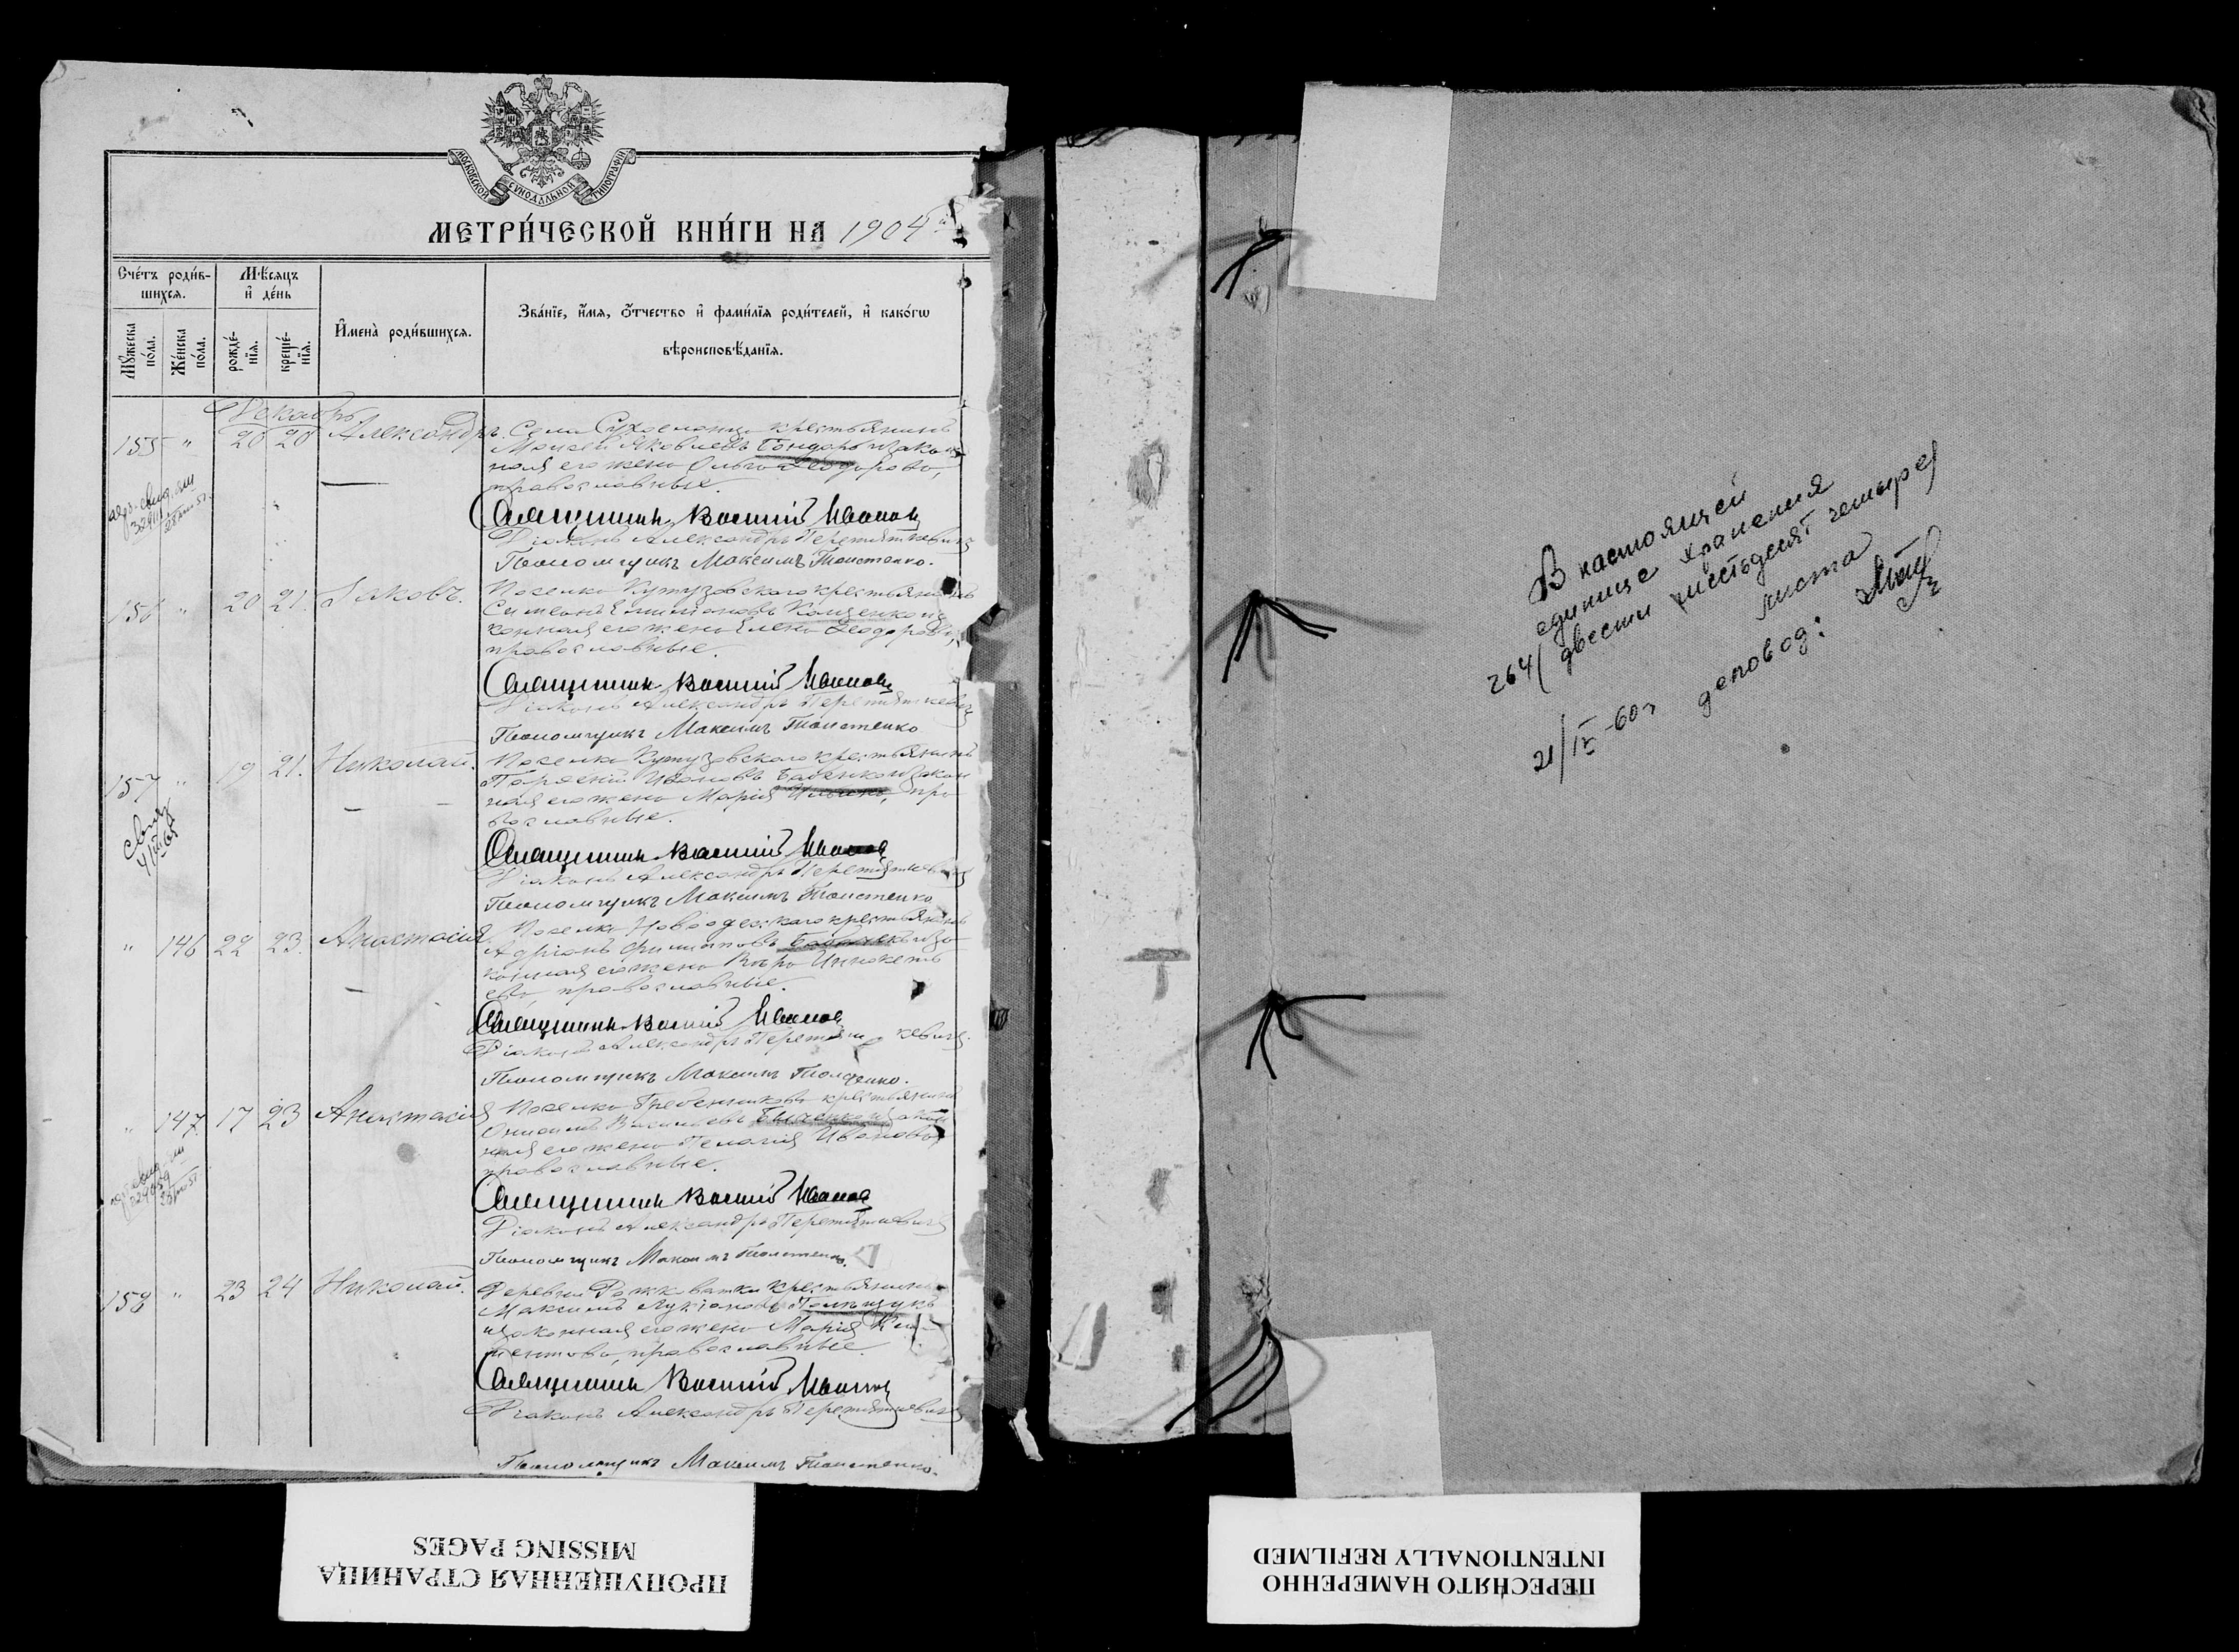 МОСКОВСКОЙ СѴНОДАЛЬНОЙ ТИПОГРАФІИ
МЕТРИ́ЧЕСКОЙ КНИ́ГИ НА 1904
Сче́тъ роди́в-
шихся.
Мѣ́сяцъ
и҆ де́нь
Мꙋ́жеска
по́ла.
Же́нска
по́ла.
рожде́-
нїя.
креще́-
нїя.
И҆мена̀ роди́вшихся.
Зва́нїе, и҆́мя, ѻ҆́тчество и҆ фами́лїя роди́телей, и҆ како́гѡ
вѣроисповѣ́данїя.
Декабрь
155 " 20 20 Александръ. Села крестьянинъ
Моисей Яковлевъ Бондарь и закон-
ная его жена Ольга Ѳеодорова,
православные.
Священникъ Василій Иванов
Діаконъ Александръ Перетяткевичъ
Псаломщикъ Максимъ
156 " 20 21. Іаковъ. Поселка Кутузовского крестьянинъ
Симеонъ
конная его жена Елена Ѳеодорова,
православные.
Священникъ Василій Иванов
Діаконъ Александръ Перетяткевичъ
Псаломщикъ Максимъ
157 " 19 21. Николай. Поселка Кутузовского крестьянинъ
Ивановъ Бабенко и закон
ная его жена Марія пра
вославные.
Священникъ Василій Иванов
Діаконъ Александръ Перетяткевичъ
Псаломщикъ Максимъ
" 146 22 23. Анастасія Поселка Новоодесского крестьянинъ
Адріанъ Филиповъ и за
конная его жена Вѣра Иннокеть
ева, православные.
Священникъ Василій Иванов
Діаконъ Александръ Перетяткевичъ
Псаломщикъ Максимъ
" 147. 17 23 Анастасія Поселка Гребенникова крестьянинъ
Онисимъ Васильевъ и закон
ная его жена Пелагія Иванова,
православные.
Священникъ Василій Иванов
Діаконъ Александръ Перетяткевичъ
Псаломщикъ Максимъ
158 " 23 24 Николай. Деревни крестьянинъ
Максимъ Лукіановъ Полищукъ
и законная его жена Марія Кли-
ментова, православные.
Священникъ Василій Иванов
Діаконъ Александръ Перетяткевичъ
Псаломщикъ Максимъ
В настоящей
единице хранения
264/ двести шестьдесят четыре/
листа
21/IV-60 г деловод:
ПРОПУЩЕННАЯ СТРАНИЦА
MISSING PAGES
ПЕРЕСНЯТО НАМЕРЕННО
INTENTIONALLY REFILMED